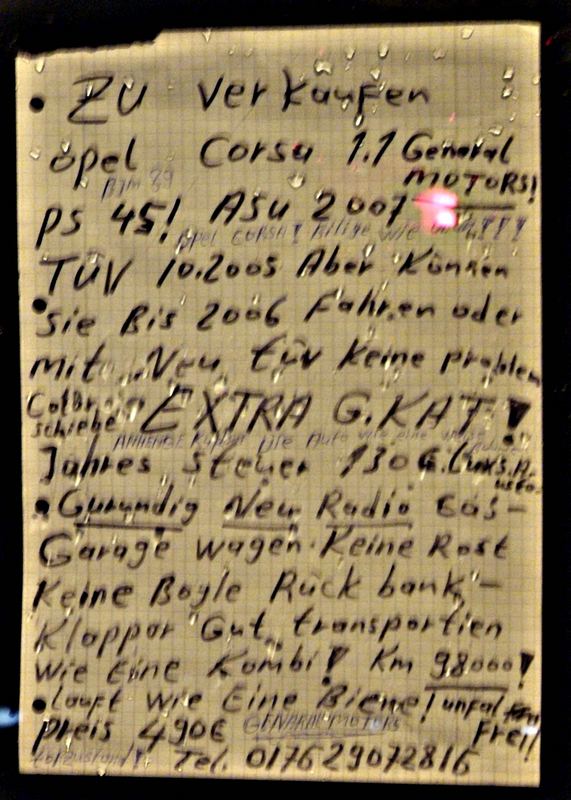 ZU verkaufen
opel Corsa 1.1 General MOTORS!
PS 45! ASU 2007
TÜV 10.2005 Aber Können
Sie Bis 2006 Fahren oder
mit Neu tüv Keine problem
schiebe EXTRA G.KAT!
Jahres steuer 130€
Gurundig Neu Radio Cas-
Garage wagen. Keine Rost
Keine Bogle Rück bank-
Klappar Gut transportien
wie Eine Kombi! Km 98000!
läuft wie Eine Biene! unfal
preis 490€ GENARAL MOTORS Frei!
Tel. 017629072816